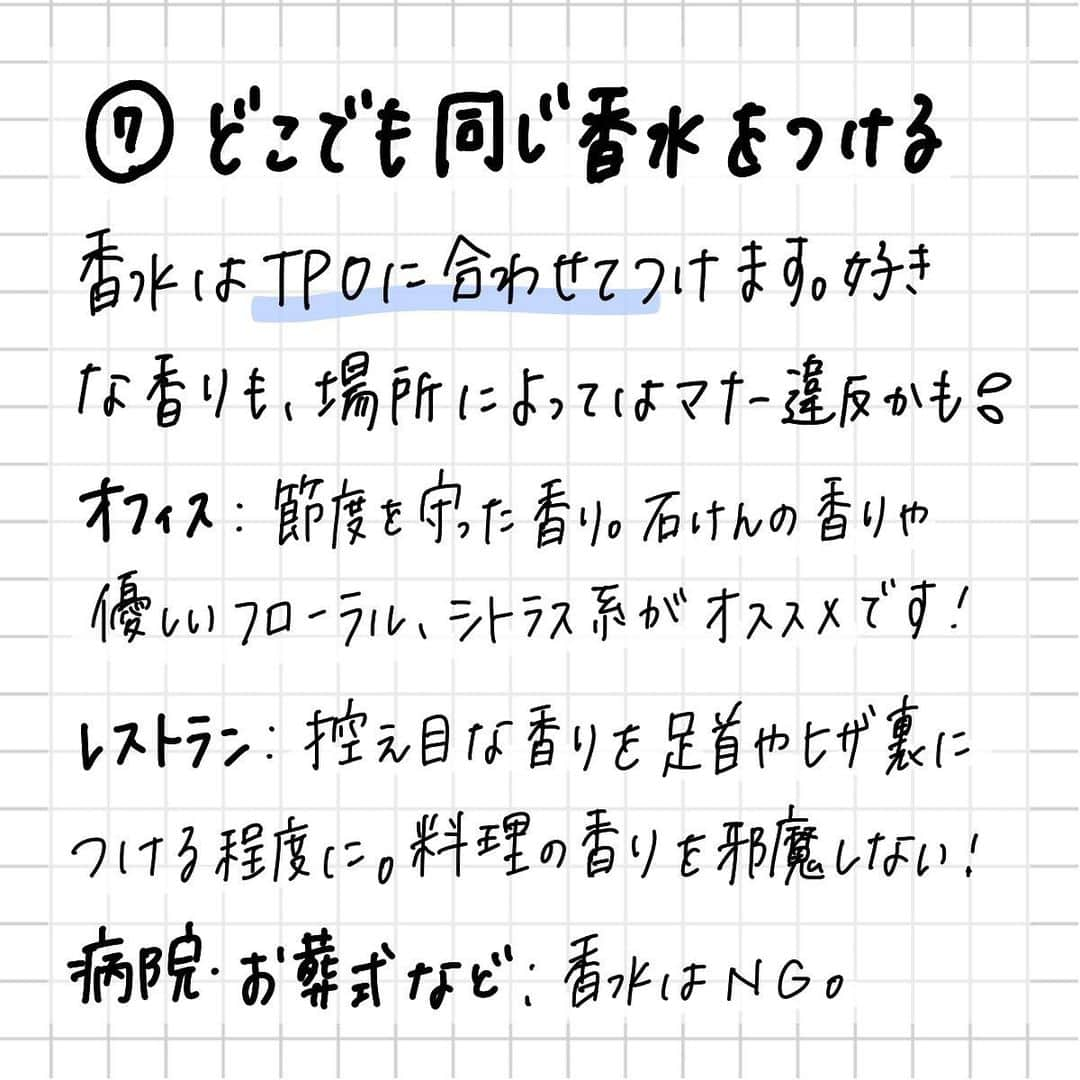 ⑦どこでも同じ香水をつける
香水はTPOに合わせてつけます。好き
な香りも、場所によってはマナー違反かも!
オフィス:節度を守った香り。石けんの香りや
優しいフローラル、シトラス系がオススメです!
レストラン:控え目な香りを足首やヒザ裏に
つける程度に。料理の香りを邪魔しない!
病院·お葬式など:香水はNG。